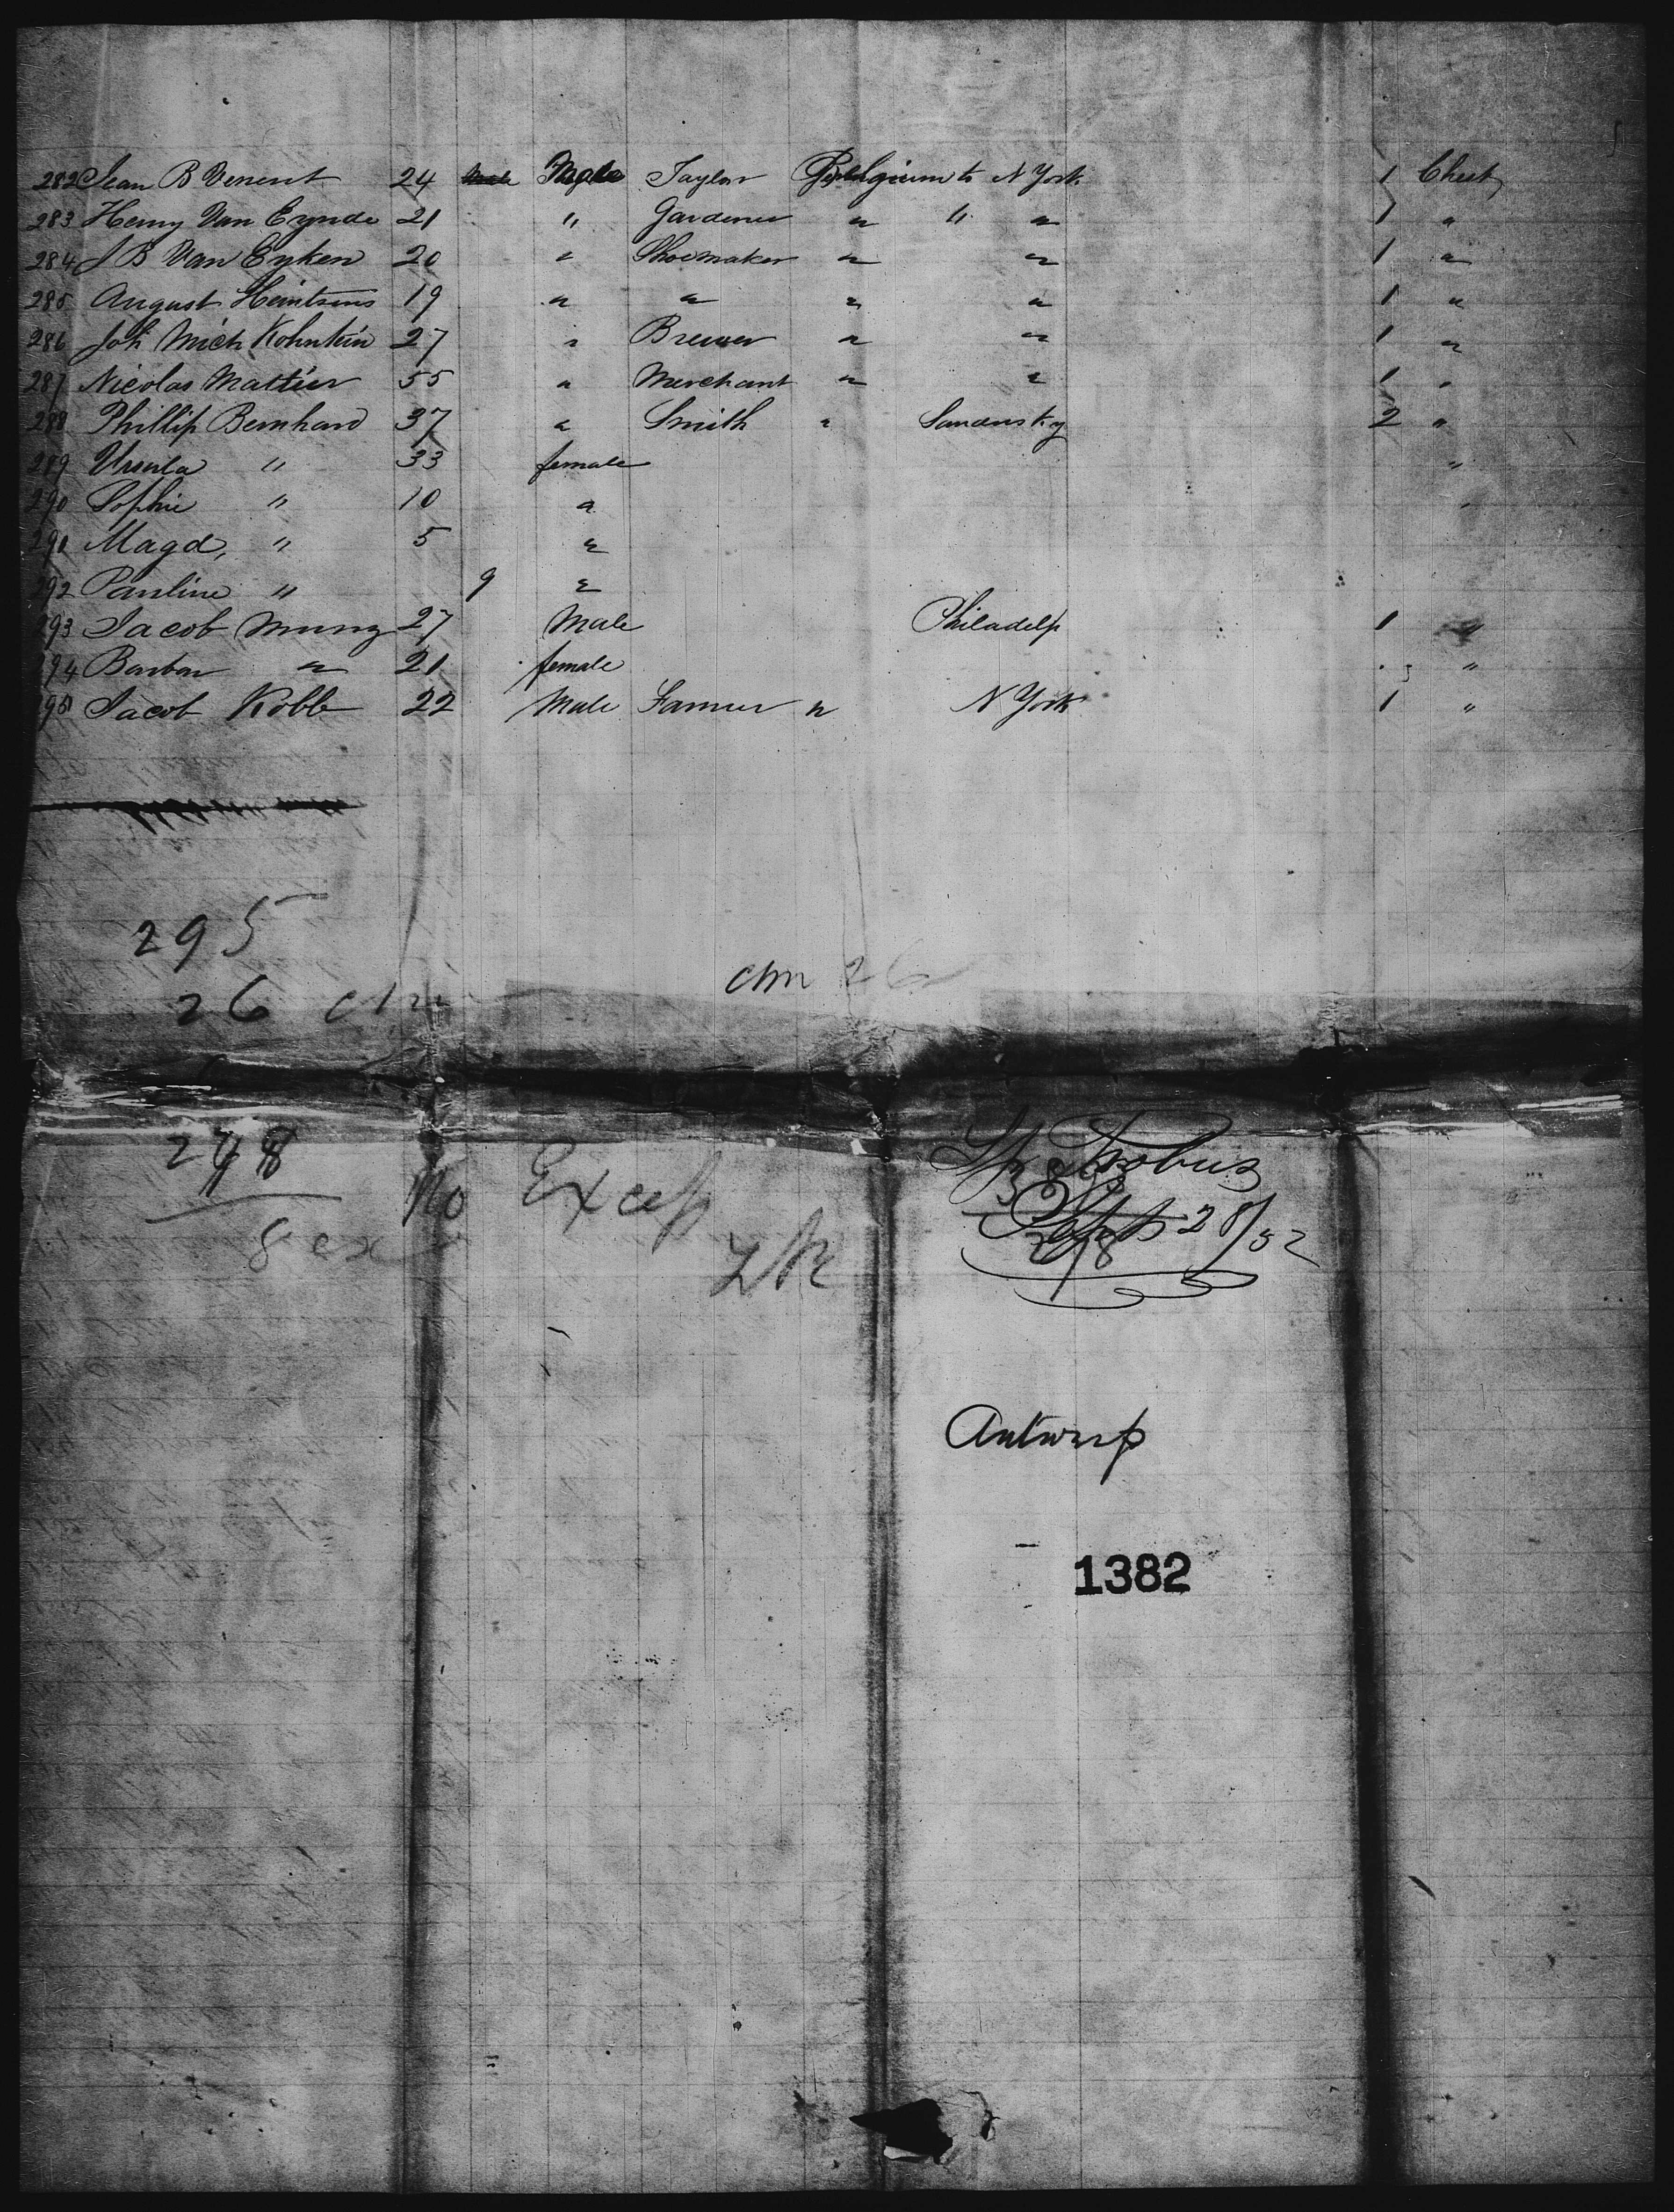 282 Jean B Venent 24 Male Taylor Belgium to N York 1 Chest
283 Henry Van Eynde 21 " Gardener " " " 1 "
284 J B Van Eyken 20 " Shoemaker " " 1 "
285 August Heintsens 19 " " " " 1 "
286 Joh Mich Kohnlein 27 " Brewer " " 1 "
287 Nicolas Mattier 55 " Merchant " " 1 "
288 Phillip Bernhard 37 " Smith " Sandusky 2 "
289 Ursula " 33 female "
290 Sophie " 10 " "
291 Magd, " 5 "
292 Pauline " 9 "
293 Jacob Munz 27 Male Philadelp 1 "
294 Barbar " 21 female "
295 Jacob Kobb 22 Male Farmer " N York 1 "
295
26 chn
chn 26
248
8 ex
No Excep
Sept 28/52
Antwerp
1382